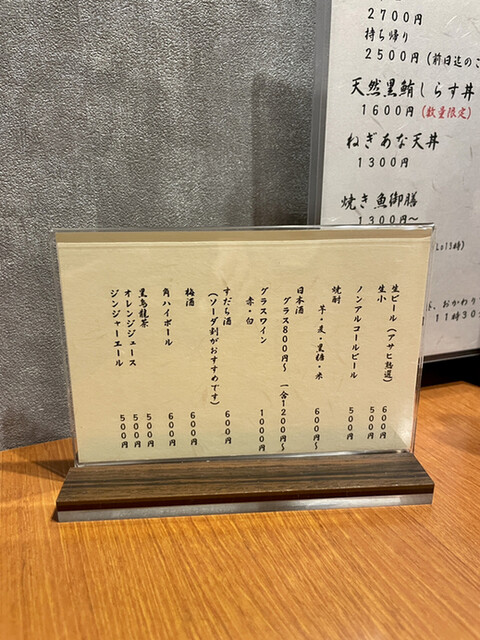 2700円
持ち帰り
2500円(前日迄のご
天然黒鮪しらす丼
1600円(数量限定)
ねぎあな天丼
1300円
焼き魚御膳
1300円〜
おかわり
11時30
生ビール(アサヒ熟選) 600円
生小 500円
ノンアルコールビール 500円
焼酎
芋・麦・黒糖・米 600円〜
日本酒
グラス800円〜 一合1200円〜
グラスワイン 1000円
赤・白
すだち酒 600円
(ソーダ割がおすすめです)
梅酒 600円
角ハイボール 600円
黒烏龍茶 500円
オレンジジュース 500円
ジンジャーエール 500円